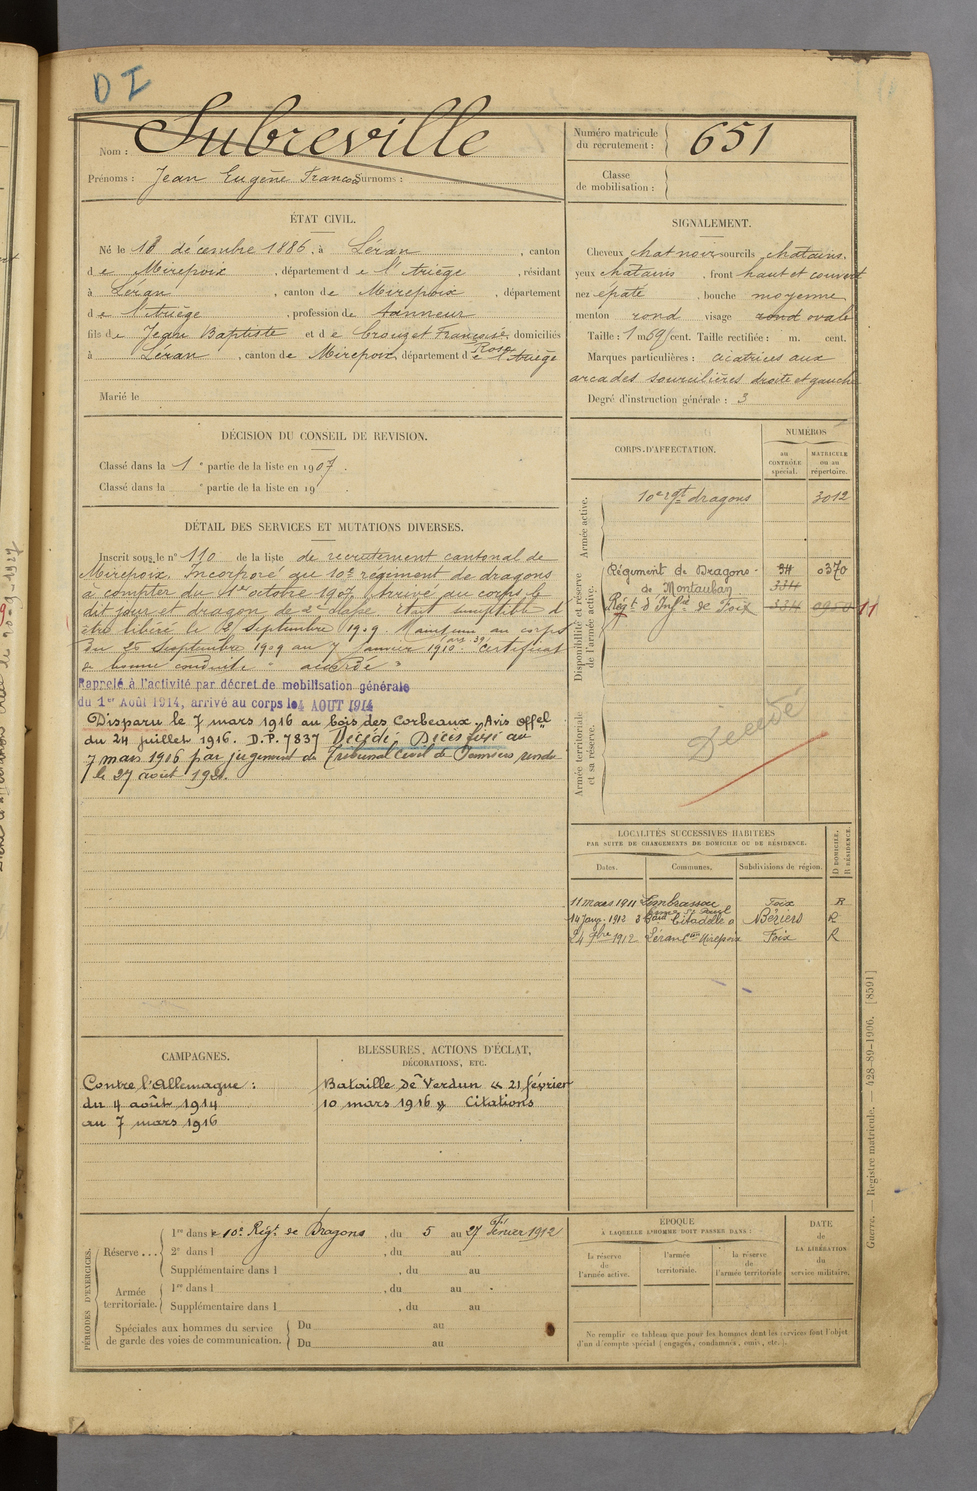 D I
Nom : Subreville
Prénoms : Jean Eugène François Surnoms :
Numéro matricule du recrutement : 651
Classe de mobilisation :
ÉTAT CIVIL.
Né le 18 décembre 1886, à Léran, canton
de Mirepoix, département de l'Ariège, résidant
à Léran, canton de Mirepoix, département
de l'Ariège, profession de tanneur
fils de Jean Baptiste et de Crouzet Françoise, Rose domiciliés
à Léran, canton de Mirepoix, département de l'Ariège
Marié le
SIGNALEMENT.
Cheveux chat noir sourcils chatains.
yeux chatains, front haut et couvert
nez épaté, bouche moyenne
menton rond visage rond ovale
Taille : 1 m. 69 cent. Taille rectifiée : m. cent.
Marques particulières : cicatrices aux
arcades sourcilières droite et gauche
Degré d'instruction générale : 3
DÉCISION DU CONSEIL DE REVISION.
Classé dans la 1e partie de la liste en 1907.
Classé dans la e partie de la liste en 19
DÉTAIL DES SERVICES ET MUTATIONS DIVERSES.
Inscrit sous le n° 110 de la liste de recrutement cantonal de
Mirepoix. Incorporé au 10e régiment de dragons
à compter du 1er octobre 1907. Arrivé au corps le
dit jour et dragon de 2e classe. Etait susceptible d
être libéré le 2 Septembre 1909. Maintenu au corps
du 25 Septembre 1909 au 7 Janvier 1910 (art. 39). Certificat
de bonne conduite "accordé"
Rappelé à l'activité par décret de mobilisation générale
du 1er Août 1914, arrivé au corps le 4 AOUT 1914
Disparu le 7 mars 1916 au bois des Corbeaux "Avis offel
du 24 juillet 1916. D.P. 7837 Décédé. Décès fixé au
7 mars 1916 par jugement du Tribunal Civil de Pamiers rendu
le 27 août 1920.
CORPS D'AFFECTATION.
NUMÉROS
au CONTRÔLE spécial.
MATRICULE ou au répertoire.
Armée active.
10e rgt dragons 3012
Disponibilité et réserve de l'armée active.
Régiment de Dragons 0370
de Montauban
Régt d'Infie de Foix 11
Armée territoriale et sa réserve.
Décédé
LOCALITÉS SUCCESSIVES HABITÉES
PAR SUITE DE CHANGEMENTS DE DOMICILE OU DE RÉSIDENCE.
Dates. Communes. Subdivisions de région. D DOMICILE. R RÉSIDENCE.
11 mars 1911 Foix R
14 Janv. 1912 Citadelle Béziers R
1912 Léran Con Mirepoix Foix R
CAMPAGNES.
Contre l'Allemagne :
du 4 août 1914
au 7 mars 1916
BLESSURES, ACTIONS D'ÉCLAT,
DÉCORATIONS, ETC.
Bataille de Verdun « 21 février
10 mars 1916 » Citations
PÉRIODES D'EXERCICES.
Réserve... 1re dans le 10e Régt de Dragons, du 5 au 27 Février 1912
2e dans l , du au
Supplémentaire dans l , du au
Armée territoriale. 1re dans l , du au
Supplémentaire dans l , du au
Spéciales aux hommes du service de garde des voies de communication. Du au
Du au
ÉPOQUE
À LAQUELLE L'HOMME DOIT PASSER DANS :
la réserve de l'armée active.
l'armée territoriale.
la réserve de l'armée territoriale
DATE de LA LIBÉRATION du service militaire.
Ne remplir ce tableau que pour les hommes dont les services font l'objet
d'un décompte spécial (engagés, condamnés, omis, etc.).
Guerre. — Registre matricule. — 428-89-1906. [8591]